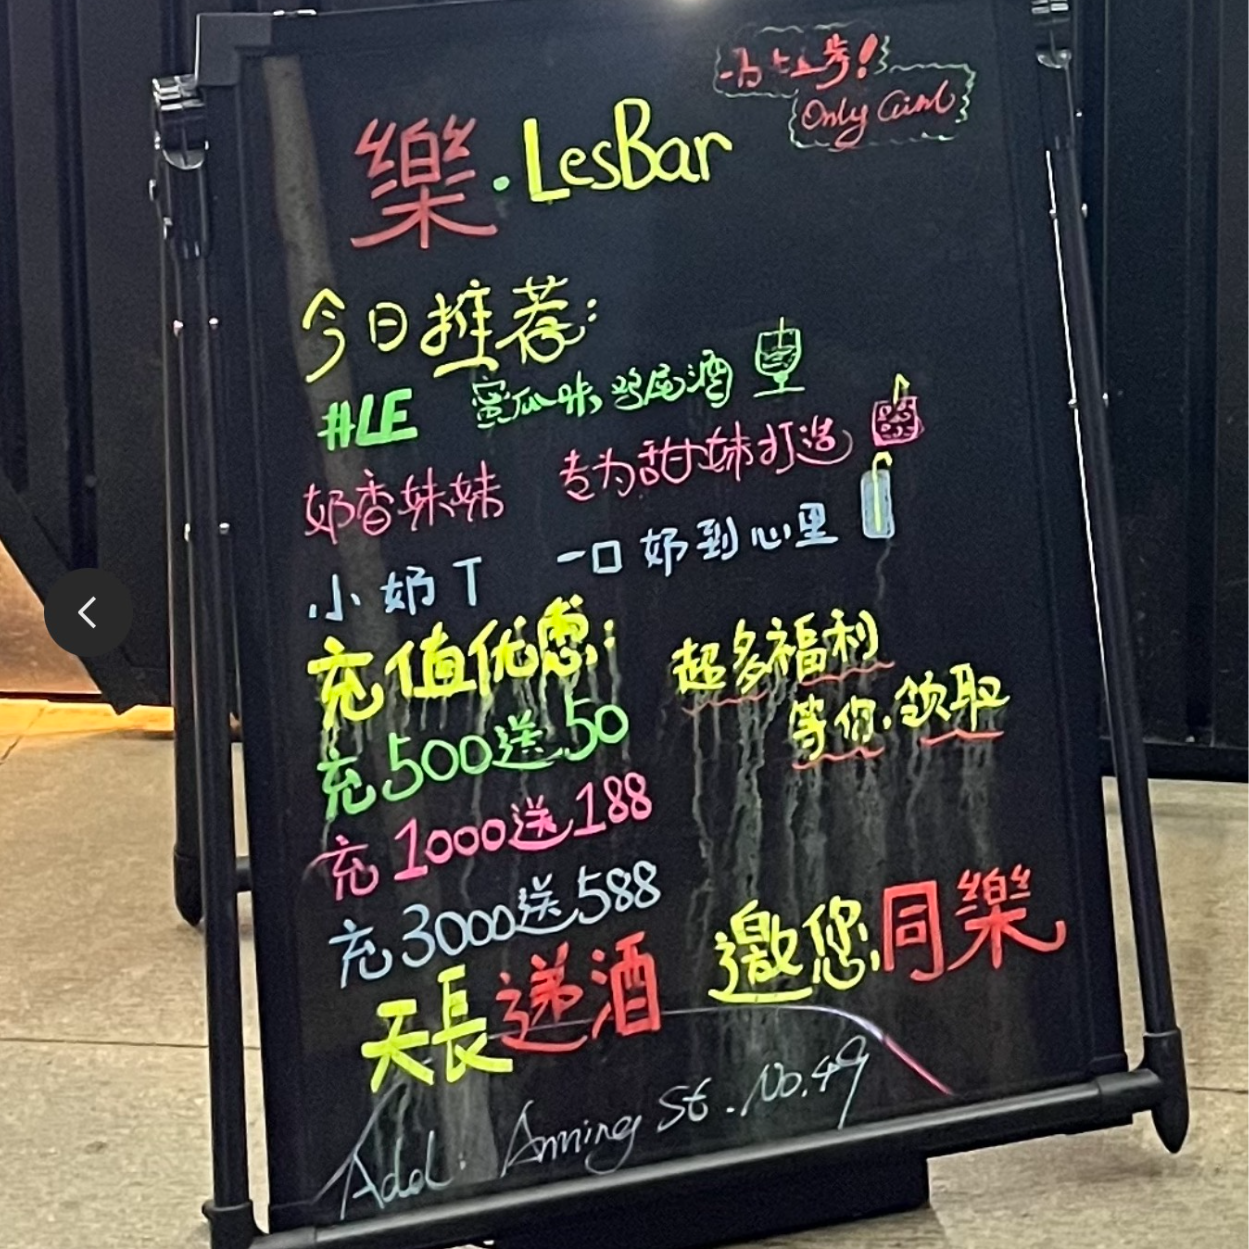 Only Girl
樂·LesBar
今日推荐:
#LE 蜜瓜味鸡尾酒
奶香妹妹 专为甜妹打造
小奶T 一口奶到心里
充值优惠: 超多福利
等你领取
充500送50
充1000送188
充3000送588
天長递酒 邀您同樂
Add: Anning St. No.49